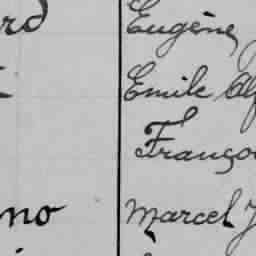 rd Eugène
Emile Al
Franço
no Marcel J